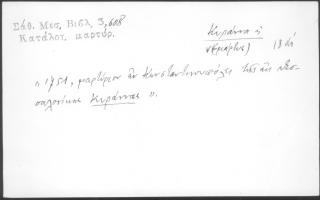 Σάθ. Μεσ. Βιβλ. 3, 608
Κατάλογ. μαρτύρ.
Κυράννα ἡ
νεομάρτυς 18 αἰ
"1751, μαρτύριον ἐν Κωνσταντινουπόλει τῆς ἐκ Θεσ-
σαλονίκης Κυράννας".